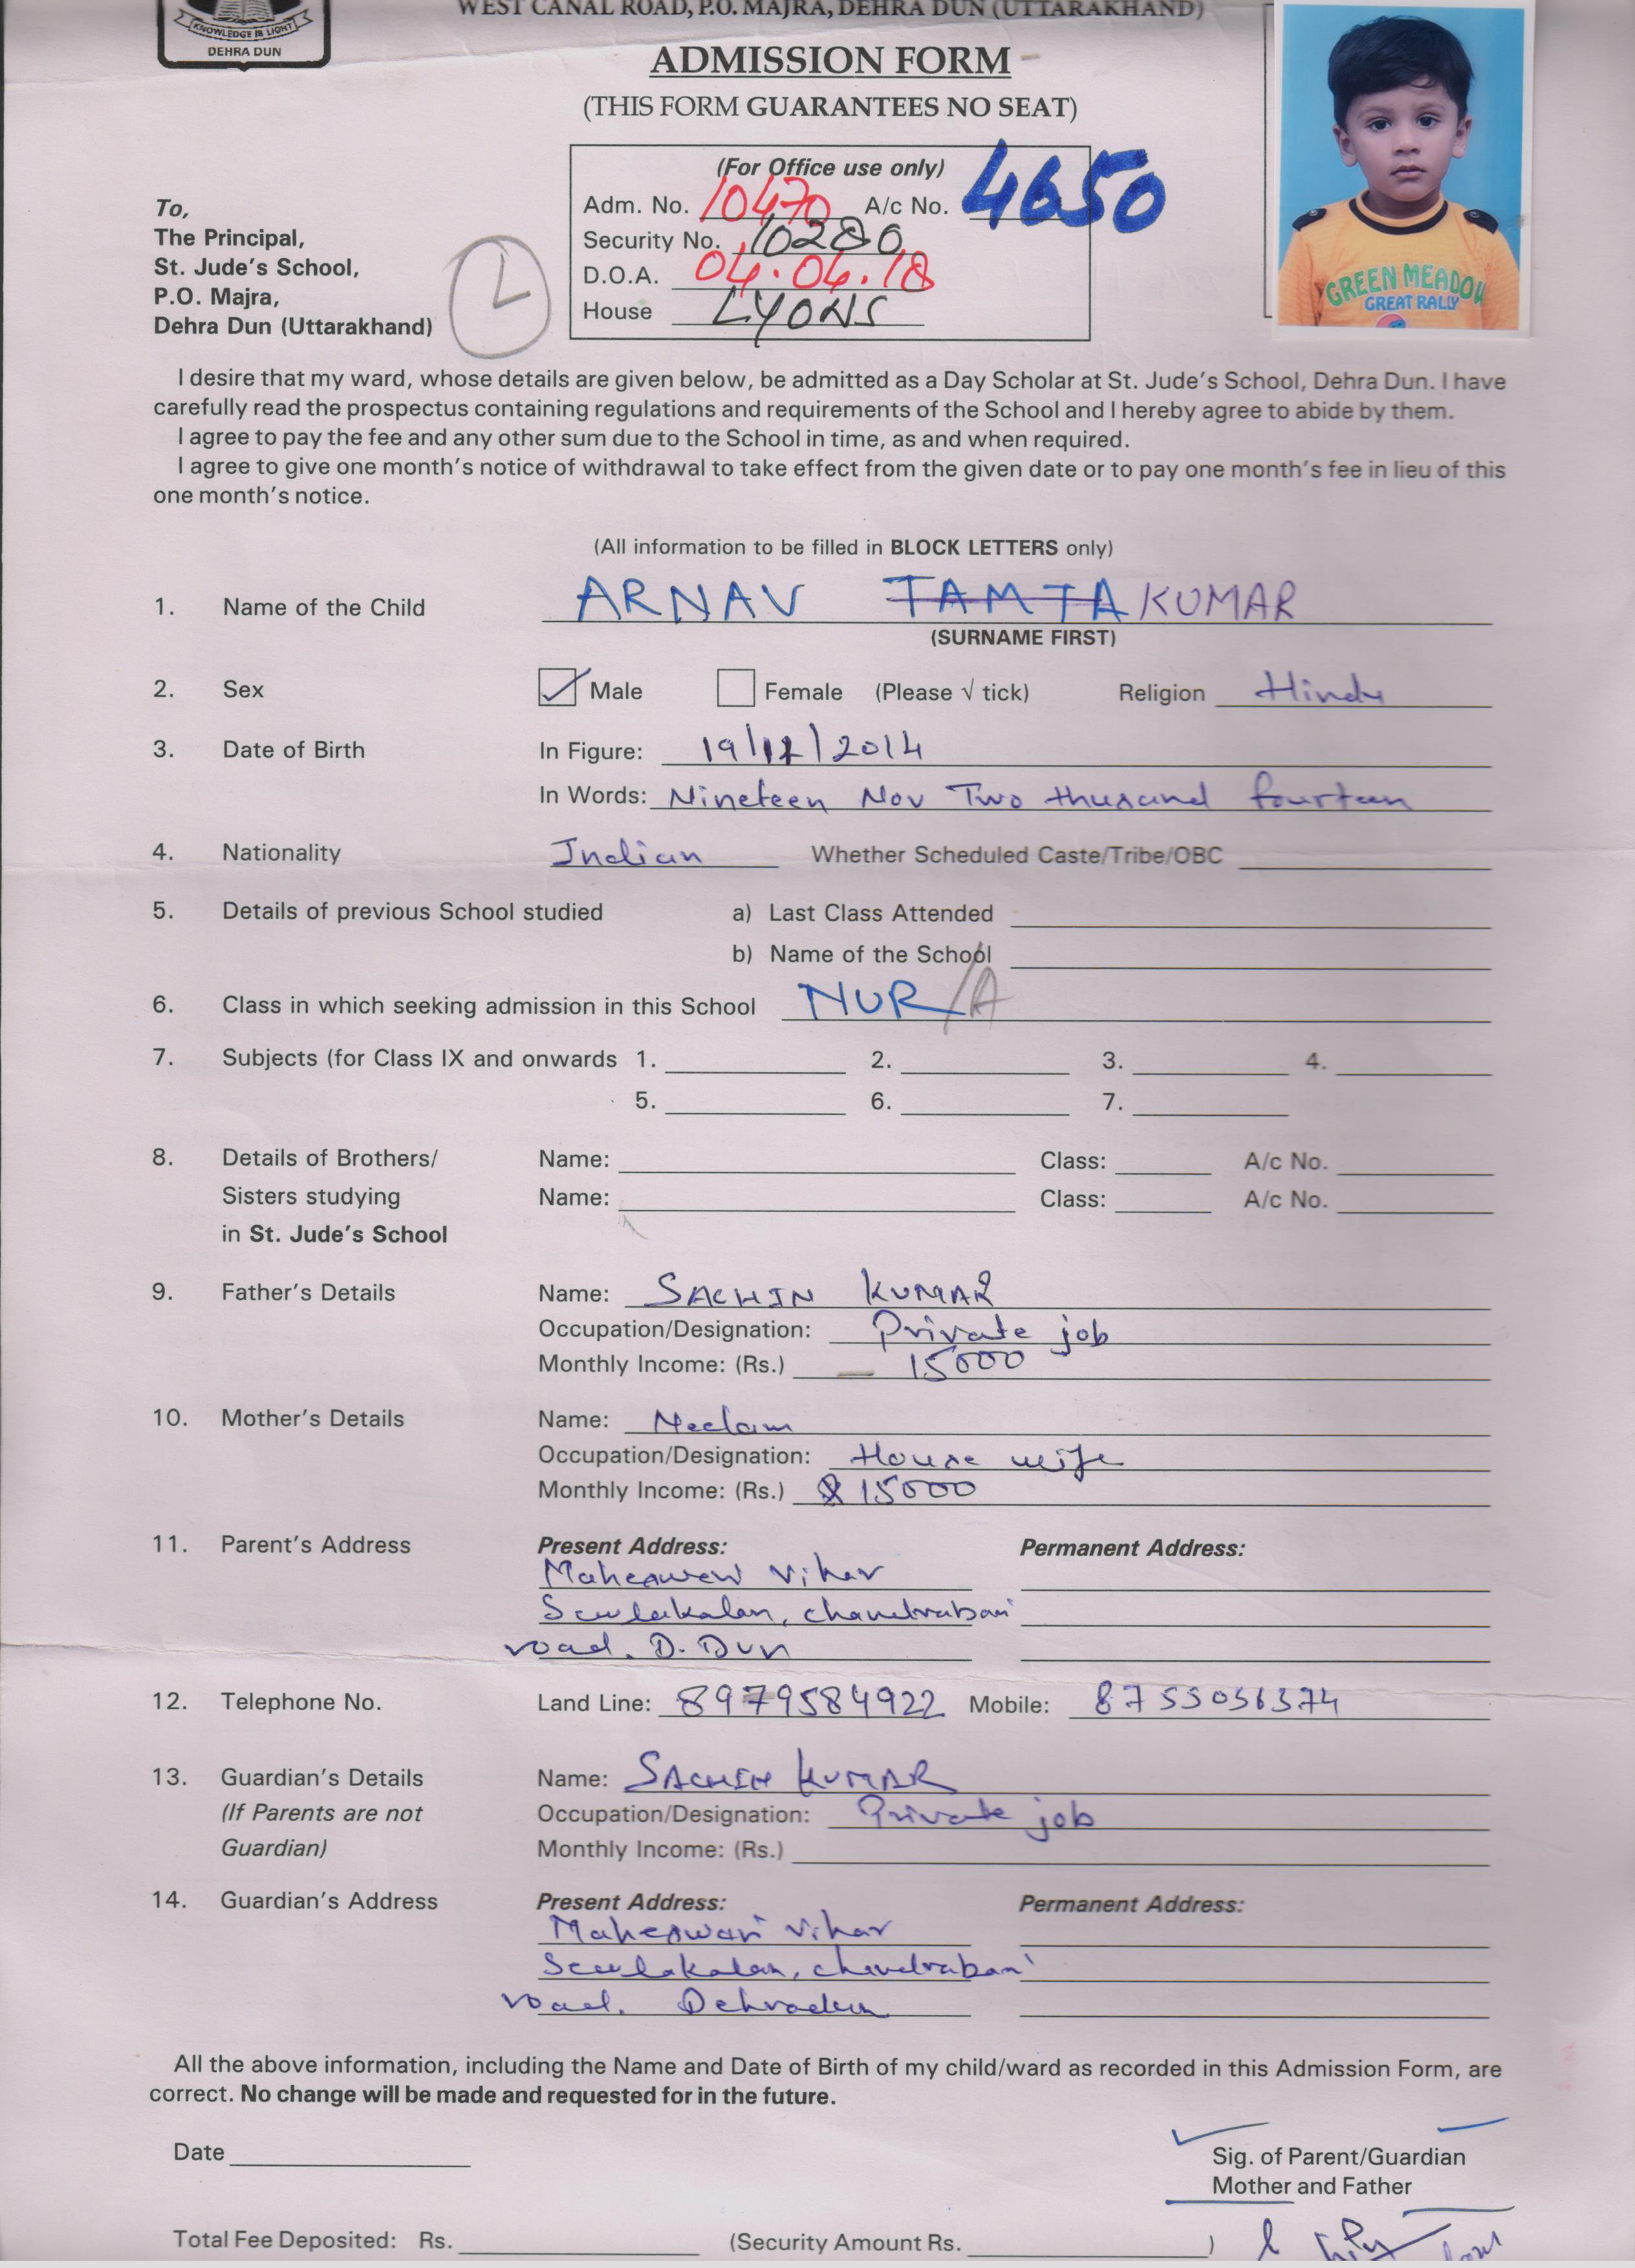 KNOWLEDGE IS LIGHT
DEHRA DUN
WEST CANAL ROAD, P.O. MAJRA, DEHRA DUN (UTTARAKHAND)
ADMISSION FORM
(THIS FORM GUARANTEES NO SEAT)
(For Office use only)
Adm. No. 10470 A/c No. 4650
Security No. 10280
D.O.A. 04.04.18
House LYONS
To,
The Principal,
St. Jude's School,
P.O. Majra,
Dehra Dun (Uttarakhand)
L
GREEN MEADOW
GREAT RALLY
I desire that my ward, whose details are given below, be admitted as a Day Scholar at St. Jude's School, Dehra Dun. I have
carefully read the prospectus containing regulations and requirements of the School and I hereby agree to abide by them.
I agree to pay the fee and any other sum due to the School in time, as and when required.
I agree to give one month's notice of withdrawal to take effect from the given date or to pay one month's fee in lieu of this
one month's notice.
(All information to be filled in BLOCK LETTERS only)
1. Name of the Child ARNAV TAMTA KUMAR
(SURNAME FIRST)
2. Sex Male Female (Please √ tick) Religion Hindu
3. Date of Birth In Figure: 19/11/2014
In Words: Nineteen Nov Two thusand fourteen
4. Nationality Indian Whether Scheduled Caste/Tribe/OBC
5. Details of previous School studied a) Last Class Attended
b) Name of the School
6. Class in which seeking admission in this School NUR/A
7. Subjects (for Class IX and onwards 1. 2. 3. 4.
5. 6. 7.
8. Details of Brothers/ Name: Class: A/c No.
Sisters studying Name: Class: A/c No.
in St. Jude's School
9. Father's Details Name: SACHIN KUMAR
Occupation/Designation: Private job
Monthly Income: (Rs.) 15000
10. Mother's Details Name: Neelam
Occupation/Designation: House wife
Monthly Income: (Rs.) 15000
11. Parent's Address Present Address: Permanent Address:
Maheswari Vihar
Sewlakalan, chandrabani
road. D. Dun
12. Telephone No. Land Line: 8979584922 Mobile: 8755056374
13. Guardian's Details Name: SACHIN KUMAR
(If Parents are not Occupation/Designation: Private job
Guardian) Monthly Income: (Rs.)
14. Guardian's Address Present Address: Permanent Address:
Maheswari Vihar
Sewlakalan, chandrabani
road. Dehradun
All the above information, including the Name and Date of Birth of my child/ward as recorded in this Admission Form, are
correct. No change will be made and requested for in the future.
Date
Sig. of Parent/Guardian
Mother and Father
Total Fee Deposited: Rs. (Security Amount Rs. )